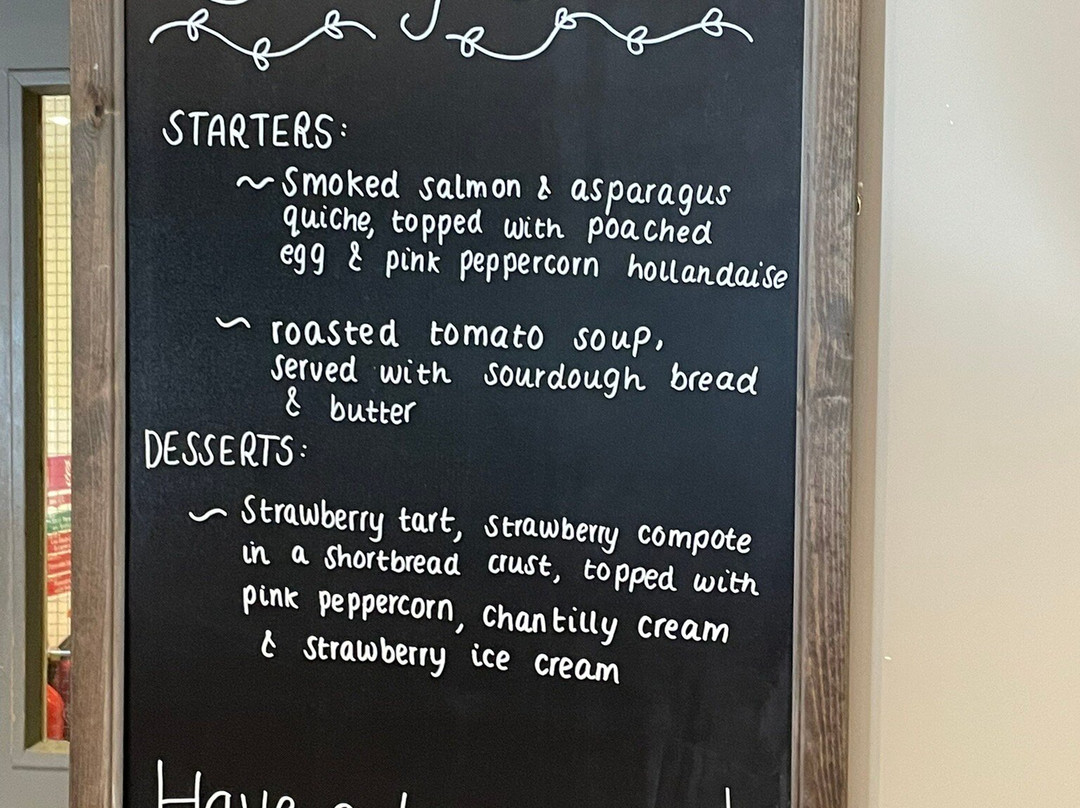 STARTERS:
~ Smoked salmon & asparagus
quiche, topped with poached
egg & pink peppercorn hollandaise
~ roasted tomato soup,
served with sourdough bread
& butter
DESSERTS:
~ Strawberry tart, strawberry compote
in a shortbread crust, topped with
pink peppercorn, Chantilly cream
& strawberry ice cream
Have a